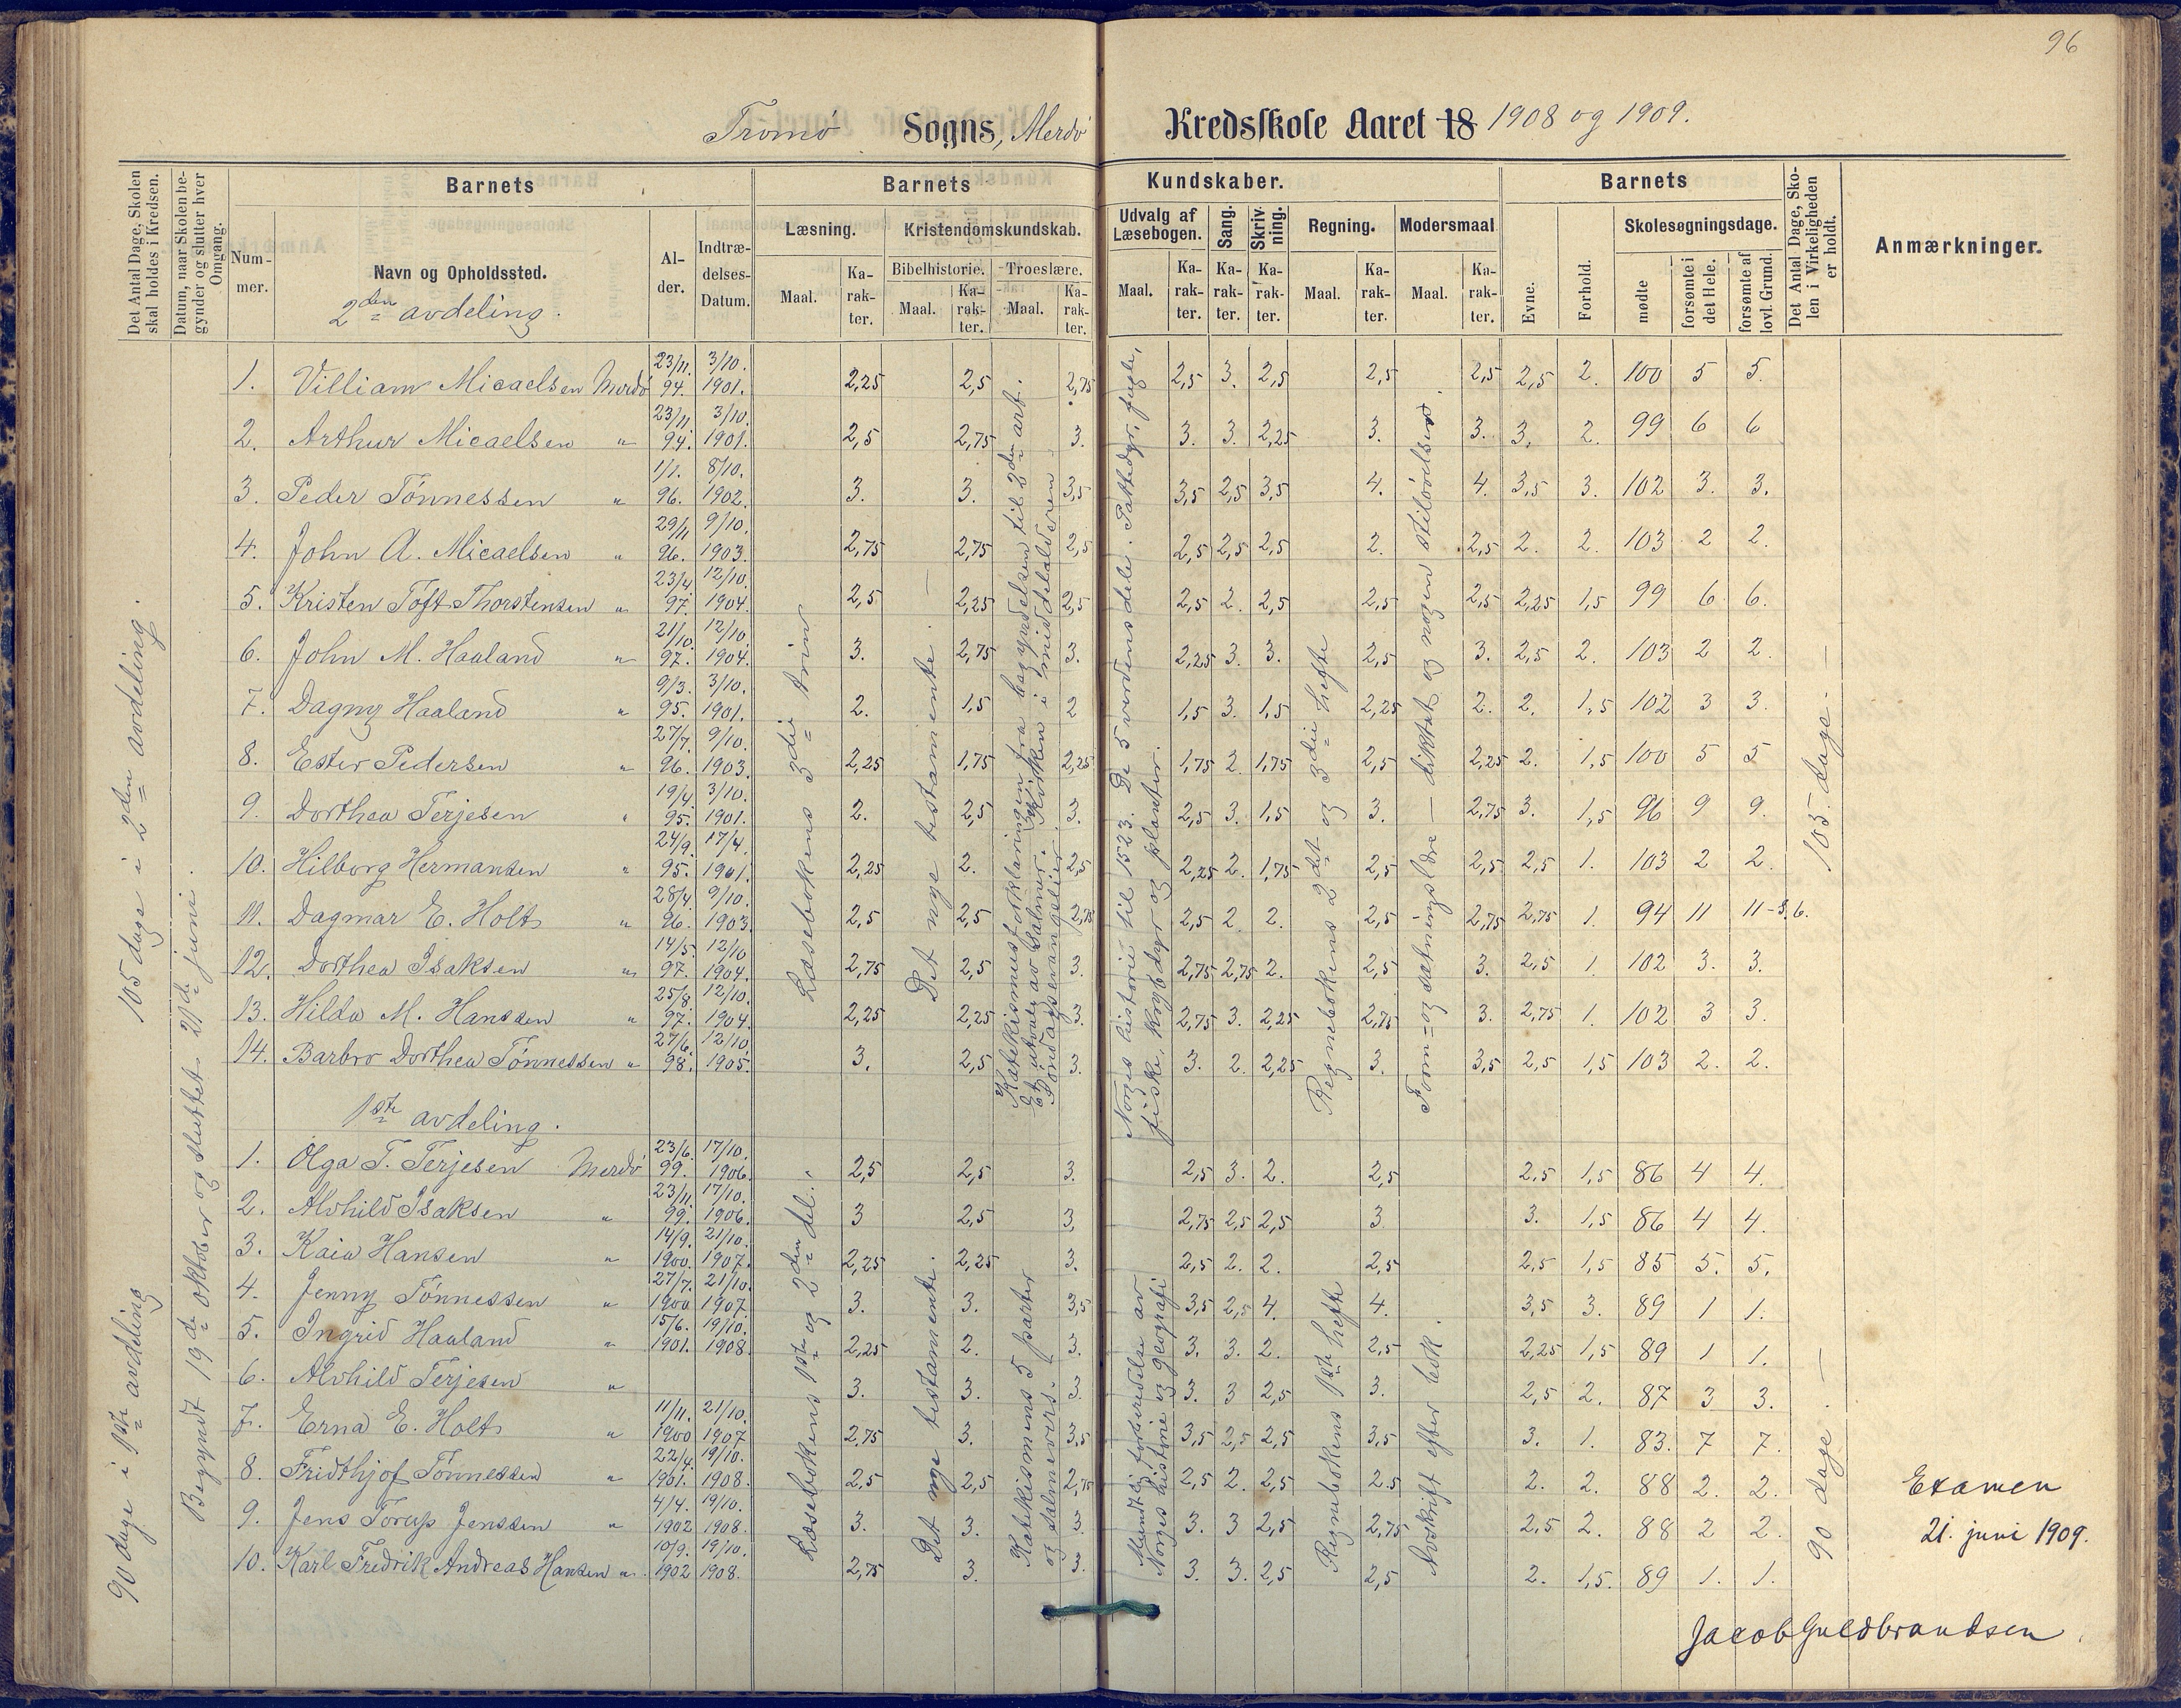 96
Tromø Sogns, Merdø Kredsskole Aaret 18 1908 og 1909.
Det Antal Dage, Skolen skal holdes i Kredsen.
Datum, naar Skolen begynder og slutter hver Omgang.
Barnets
Nummer.
Navn og Opholdssted.
2den avdeling.
Alder.
Indtrædelses-Datum.
Barnets Kundskaber.
Læsning.
Maal.
Karakter.
Kristendomskundskab.
Bibelhistorie.
Maal.
Karakter.
Troeslære.
Maal.
Karakter.
Udvalg af Læsebogen.
Maal.
Karakter.
Sang.
Karakter.
Skrivning.
Karakter.
Regning.
Maal.
Karakter.
Modersmaal
Maal.
Karakter.
Barnets
Evne.
Forhold.
Skolesøgningsdage.
mødte
forsømte i det Hele.
forsømte af lovl. Grund.
Det Antal Dage, Skolen i Virkeligheden er holdt.
Anmærkninger.
105 dage i 2den avdeling.
90 dage i 1ste avdeling
Begyndt 19de oktober og sluttet 21de juni.
1. Villiam Micaelsen Merdø 23/11. 94. 3/10. 1901. 2,25 2,5 2,75 2,5 3. 2,5 2,5 2,5 2,5 2. 100 5 5.
2. Arthur Micaelsen " 23/11 94. 3/10. 1901. 2,5 2,75 3. 3. 3. 2,25 3. 3. 3. 2. 99 6 6
3. Peder Tønnessen " 1/1. 96. 8/10. 1902. 3. 3. 3,5 3,5 2,5 3,5 4. 4. 3,5 3. 102 3. 3.
4. John A. Micaelsen " 29/11 96. 9/10. 1903. 2,75 2,75 2,5 2,5 2,5 2,5 2. 2,5 2. 2. 103 2 2.
5. Kristen Toft Thorstensen " 23/4 97. 12/10. 1904. 2,5 2,25 2,5 2,5 2. 2,5 2,5 2,5 2,25 1,5 99 6 6.
6. John M. Haaland " 21/10. 97. 12/10. 1904. 3. 2,75 3. 2,25 3. 3. 2,5 3. 2,5 2. 103 2 2.
7. Dagny Haaland " 9/3. 95. 3/10. 1901. 2. 1,5 2 1,5 3. 1,5 2,25 2. 2. 1,5 102 3 3.
8. Ester Pedersen " 27/7. 96. 9/10. 1903. 2,25 1,75 2,25 1,75 2 1,75 2,5 2,25 2. 1,5 100 5 5
9. Dorthea Terjesen " 19/4 95. 3/10. 1901. 2. 2,5 3. 2,5 3. 1,5 3. 2,75 3. 1,5 96 9 9.
10. Hilborg Hermansen " 24/9. 95. 17/4. 1901. 2,25 2. 2,5 2,25 2. 1,75 2,5 2,5 2,5 1. 103 2 2.
11. Dagmar E. Holt " 28/4. 96. 9/10. 1903. 2,5 2,5 2,75 2,5 2 2. 2,5 2,75 2,75 1. 94 11 11-s.6.
12. Dorthea Isaksen " 14/5. 97. 12/10 1904. 2,75 2,5 3. 2,75 2,75 2. 2,5 3. 2,5 1. 102 3. 3.
13. Hilda M. Hanssen " 25/8 97. 12/10. 1904. 2,25 2,25 3. 2,75 3. 2,25 2,75 3. 2,75 1. 102 3 3.
14. Barbro Dorthea Tønnessen " 27/6. 98. 12/10 1905. 3. 2,5 3. 3. 2. 2,25 3. 3,5 2,5 1,5 103 2. 2.
Læsebokens 3die trin
Det nye testamente. —
Katekismusforklaringen fra begyndelsen til 3den art.
Et utvalg av salmer. Kirken i middelalderen.
Søndagsevangelier.
Norges historie til 1523. De 5 verdensdele. Pattedyr, fugle,
fiske, krybdyr og planter.
Regnebokens 2det og 3die hefte
Form= og sætningslære — diktat og nogen stiløvelser.
105 dage. —
1ste avdeling.
1. Olga T. Terjesen Merdø 23/6. 99. 17/10. 1906. 2,5 2,5 3. 2,5 3. 2. 2,5 2,5 1,5 86 4 4.
2. Alvhild Isaksen " 23/11 99. 17/10. 1906. 3 2,5 3. 2,75 2,5 2,5 3 3. 1,5 86 4 4.
3. Kaia Hansen " 14/9. 1900. 21/10. 1907. 2,25 2,25 3. 2,5 2. 2. 2,5 2,5 1,5 85 5. 5.
4. Jenny Tønnessen " 27/7. 1900 21/10 1907 3. 3. 3,5 3,5 2,5 4. 4. 3,5 3. 89 1 1.
5. Ingrid Haaland " 15/6. 1901. 19/10. 1908. 2,25 2. 3. 3. 3. 2. 2,5 2,25 1,5 89 1 1.
6. Alvhild Terjesen " 3. 3. 3. 3. 3 2,5 3. 2,5 2. 87 3 3.
7. Erna E. Holt " 11/11. 1900 21/10. 1907 2,75 3. 3,5 3,5 2,5 2,5 3,5 3. 1. 83. 7 7.
8. Fridthjof Tønnessen " 22/4. 1901. 19/10. 1908. 2,5 2,5 2,75 2,5 2. 2,5 2,5 2. 2. 88 2. 2.
9. Jens Torup Jenssen " 4/4. 1902 19/10. 1908. 3. 3. 3. 3. 3 2,5 2,75 2,5 2. 88 2 2.
10. Karl Fredrik Andreas Hansen " 10/9. 1902 19/10. 1908. 2,75 3. 3. 3. 3. 2,5 2,5 2. 1,5. 89 1. 1.
Læsebokens 1ste og 2den del.
Det nye testamente.
Katekismens 5 parter
og salmevers.
Mundtlig forberedelse av
Norges historie og geografi
Regnebokens 1ste hefte
Avskrift efter bok.
90 dage. —
Examen
21. juni 1909.
Jacob Guldbrandsen